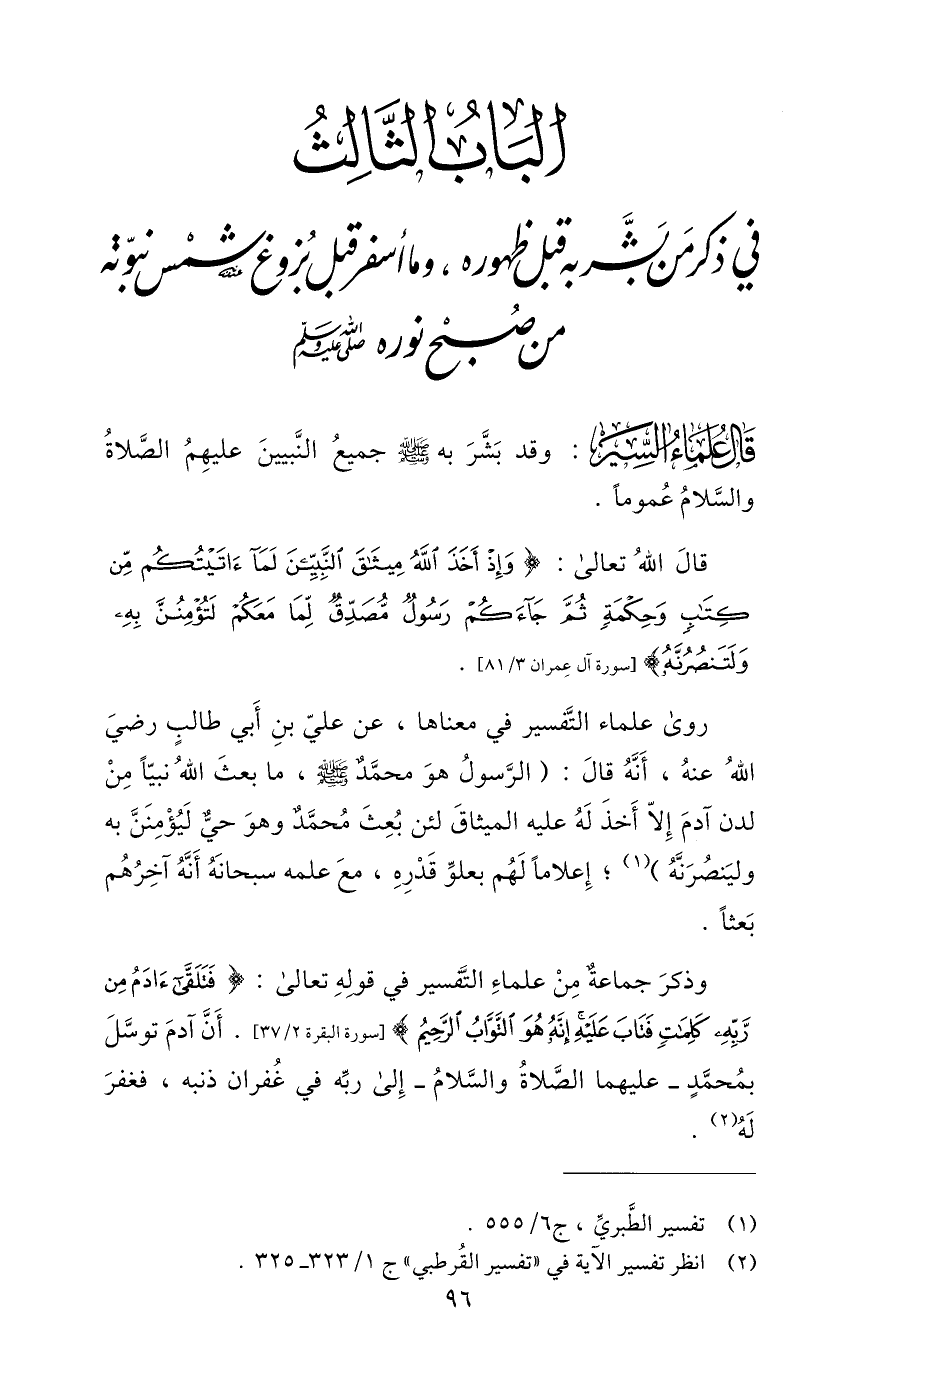 البَابُ الثَّالِثُ
في ذكر مَن بَشَّر به قبل ظهوره ، وما أسفر قبل بُزوغ شمْس نبوّته ﷺ
من صُبْح نوره ﷺ
قَالَ عُلَمَاءُ السِّيَرِ : وقد بَشَّرَ به ﷺ جميعُ النَّبيينَ عليهِمُ الصَّلاةُ
والسَّلامُ عُموماً .
قالَ اللهُ تعالىٰ : ﴿ وَإِذْ أَخَذَ ٱللَّهُ مِيثَٰقَ ٱلنَّبِيِّـۧنَ لَمَآ ءَاتَيْتُكُم مِّن
كِتَٰبٍ وَحِكْمَةٍ ثُمَّ جَآءَكُمْ رَسُولٌ مُّصَدِّقٌ لِّمَا مَعَكُمْ لَتُؤْمِنُنَّ بِهِۦ
وَلَتَنصُرُنَّهُۥ﴾ [سورة آل عِمران ٣/ ٨١] .
روىٰ علماء التَّفسير في معناها ، عن عليّ بنِ أَبي طالبٍ رضيَ
اللهُ عنهُ ، أَنَّهُ قالَ : ( الرَّسولُ هوَ محمَّدٌ ﷺ ، ما بعثَ اللهُ نبيّاً مِنْ
لدن آدمَ إِلاّ أَخذَ لَهُ عليه الميثاقَ لئن بُعِثَ مُحمَّدٌ وهوَ حيٌّ لَيُؤْمِنَنَّ به
وليَنصُرَنَّهُ )(١) ؛ إِعلاماً لَهُم بعلوِّ قَدْرِهِ ، معَ علمه سبحانَهُ أَنَّهُ آخِرُهُم
بَعثاً .
وذكرَ جماعةٌ مِنْ علماءِ التَّفسير في قولِهِ تعالىٰ : ﴿ فَتَلَقَّىٰٓ ءَادَمُ مِن
رَّبِّهِۦ كَلِمَٰتٍ فَتَابَ عَلَيْهِۚ إِنَّهُۥ هُوَ ٱلتَّوَّابُ ٱلرَّحِيمُ ﴾ [سورة البقرة ٢/ ٣٧] . أَنَّ آدمَ توسَّلَ
بمُحمَّدٍ ـ عليهما الصَّلاةُ والسَّلامُ ـ إِلىٰ ربِّه في غُفران ذنبه ، فغفرَ
لَهُ(٢) .
(١) تفسير الطَّبريِّ ، ج٦/ ٥٥٥ .
(٢) انظر تفسير الآية في «تفسير القُرطبي» ج ١/ ٣٢٣ـ ٣٢٥ .
٩٦